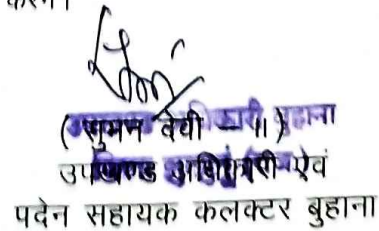 करेंगे।
( सुमन देवी – II )
उपखण्ड अधिकारी एवं
पदेन सहायक कलक्टर बुहाना